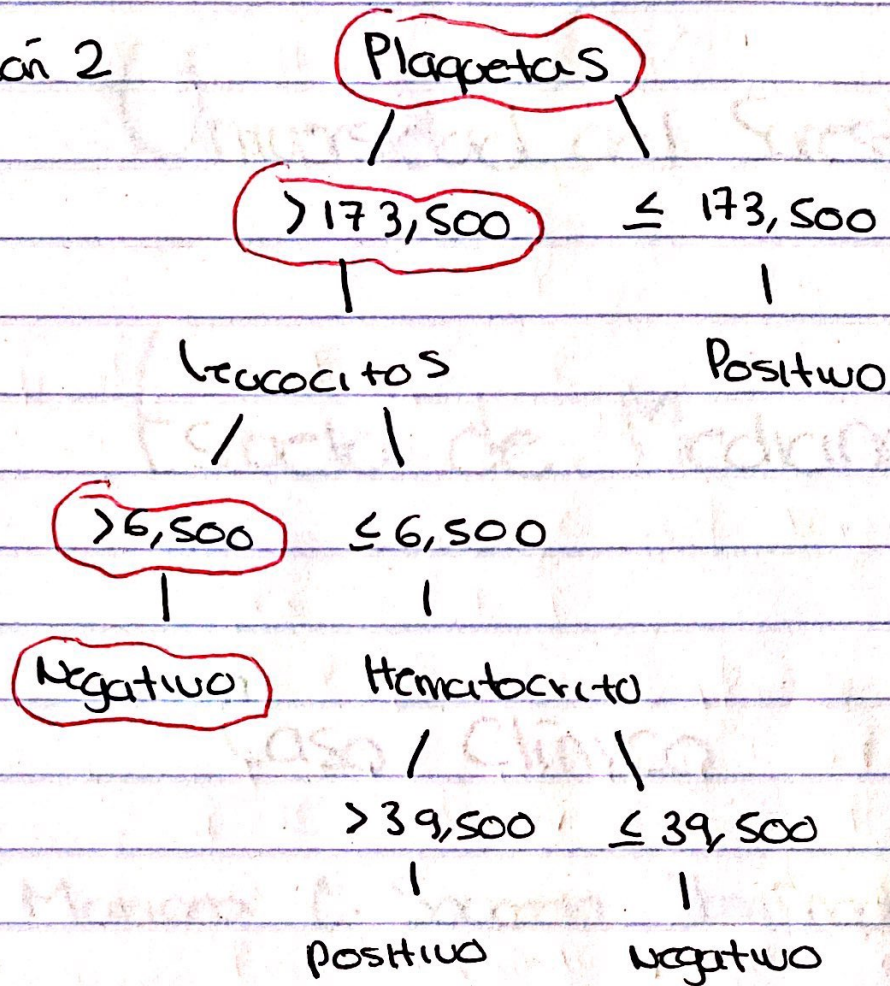 ón 2 Plaquetas
>173,500 ≤ 173,500
Leucocitos Positivo
>6,500 ≤6,500
Negativo Hematocrito
>39,500 ≤39,500
positivo Negativo